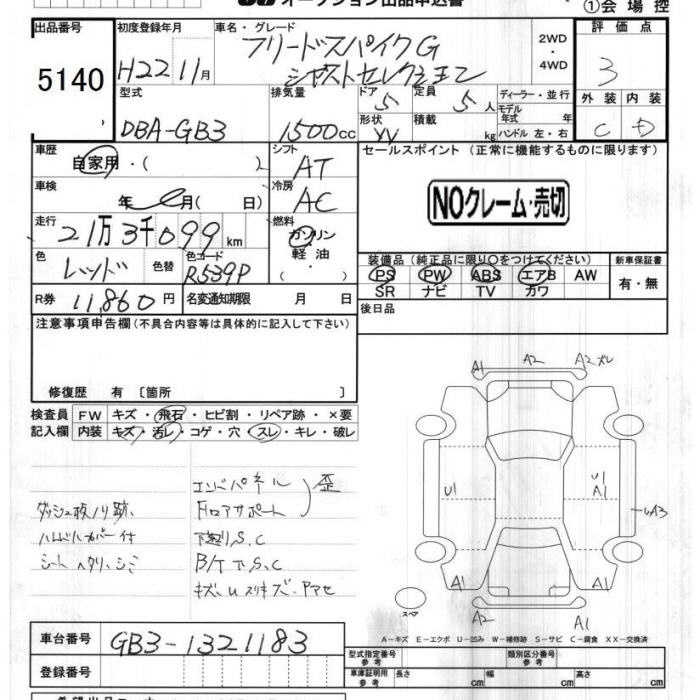 オークション出品申込書
①会場控
出品番号
5140
初度登録年月
H22 11月
車名・グレード
フリードスパイクG
ジャストセレクション
2WD
・
4WD
評価点
3
外装 内装
C D
型式
DBA-GB3
排気量
1500cc
ドア
5
定員
5人
形状
XV
積載
kg
ディーラー・並行
モデル年式 年式
ハンドル 左・右
車歴
自家用・( )
シフト
AT
セールスポイント (正常に機能するものに限ります)
車検
年 月( 日)
冷房
AC
NOクレーム・売切
走行
21万3千099km
燃料
ガソリン
軽油・
・
色
レッド
色替
色コード
R539P
装備品(純正品に限り○をつけてください)
PS PW ABS エアB AW
SR ナビ TV カワ
新車保証書
有・無
R券
11,860円
名変通知期限 月 日
後日品
注意事項申告欄(不具合内容等は具体的に記入して下さい)
修復歴 有 〔箇所 〕
検査員記入欄
FW キズ・飛石・ヒビ割・リペア跡・×要
内装 キズ・汚レ・コゲ・穴・スレ・キレ・破レ
エンドパネル
フロアサポート
歪
ダッシュ板ノリ跡、
ハンドルカバー付
シートヘタリ、シミ
下廻りS.C
B/T下S.C
キズ、Uスリキズ、Pアセ
A1 A2 A2ズレ
U1
U1
A1
UA3
A1 A1
スペア
A2 A1
A-キズ E-エクボ U-凹み W-補修跡 S-サビ C-腐食 XX-交換済
車台番号
GB3-1321183
登録番号
型式指定番号
参考
類別区分番号
参考
車庫証明用
参考
長さ cm 幅 cm 高さ cm